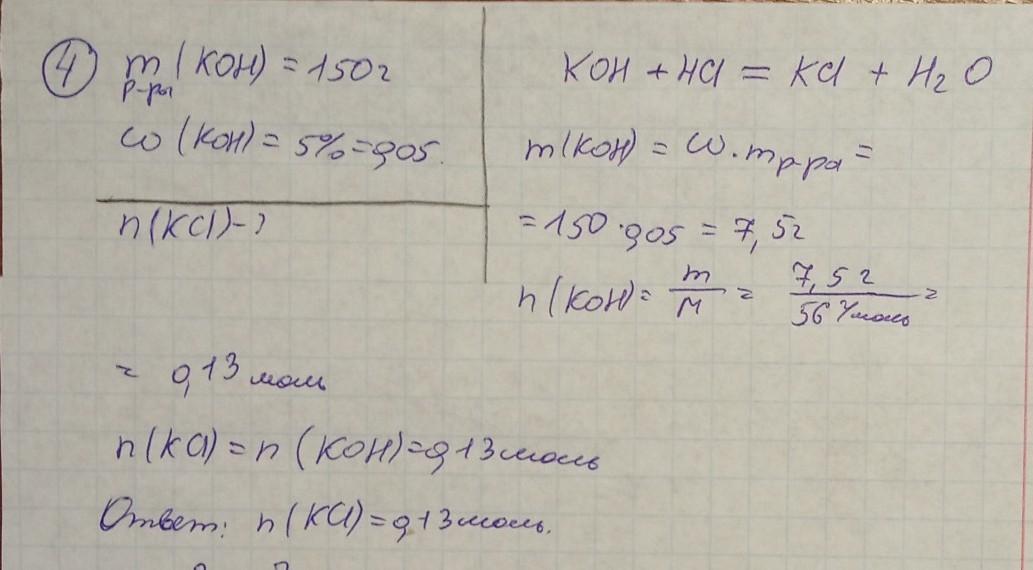 ④ m р-ры (KOH) = 150г
ω (KOH) = 5% = 0,05.
n(KCl) - ?
KOH + HCl = KCl + H₂O
m(KOH) = ω · m р-ра =
= 150 · 0,05 = 7,5г
n(KOH) = m/M = 7,5 г / 56 г/моль =
= 0,13 моль
n(KCl) = n(KOH) = 0,13 моль
Ответ: n(KCl) = 0,13 моль.